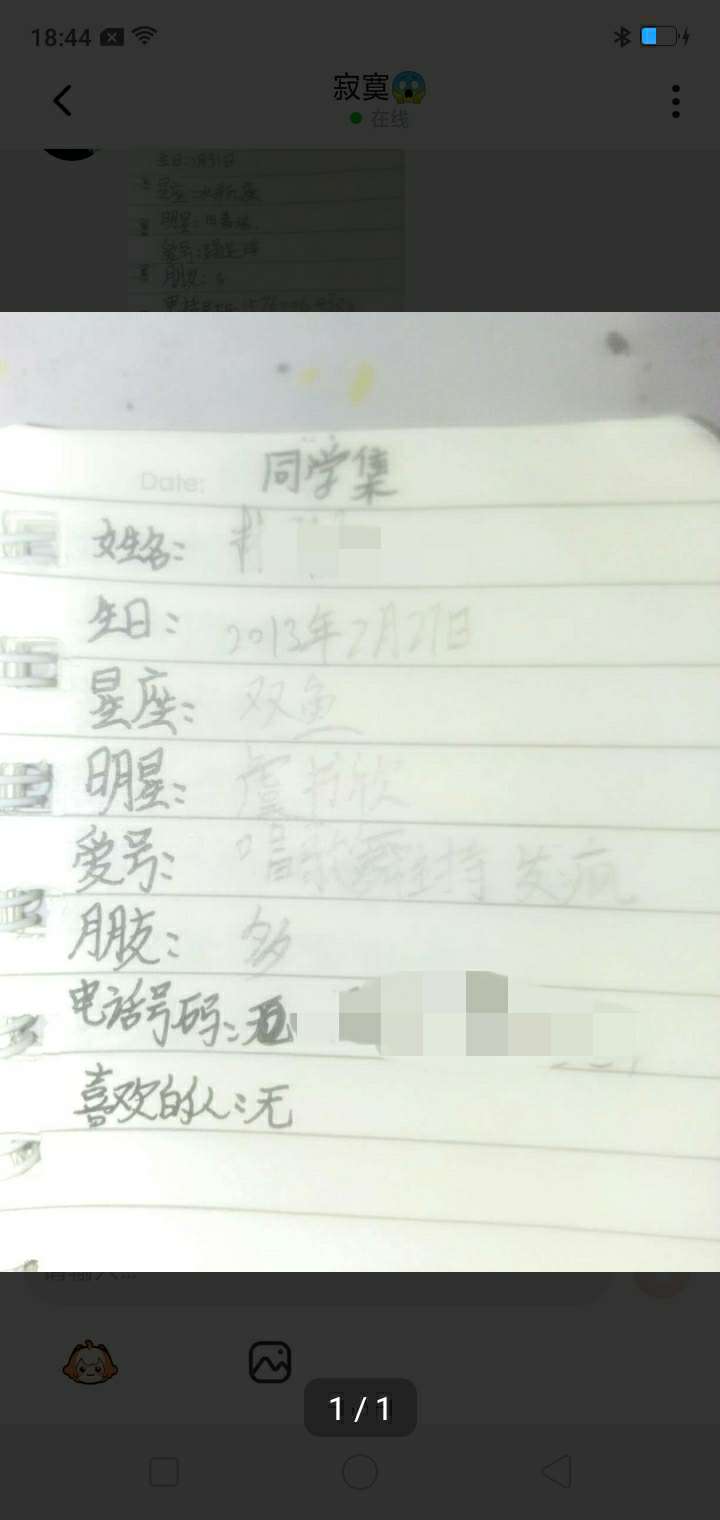 18:44
寂寞😱
在线
Date: 同学集
姓名:
生日: 2013年2月27日
星座: 双鱼
明星: 虞书欣
爱号: 唱歌舞主持 发疯
朋友: 多
电话号码:无
喜欢的人:无
请输入...
1 / 1